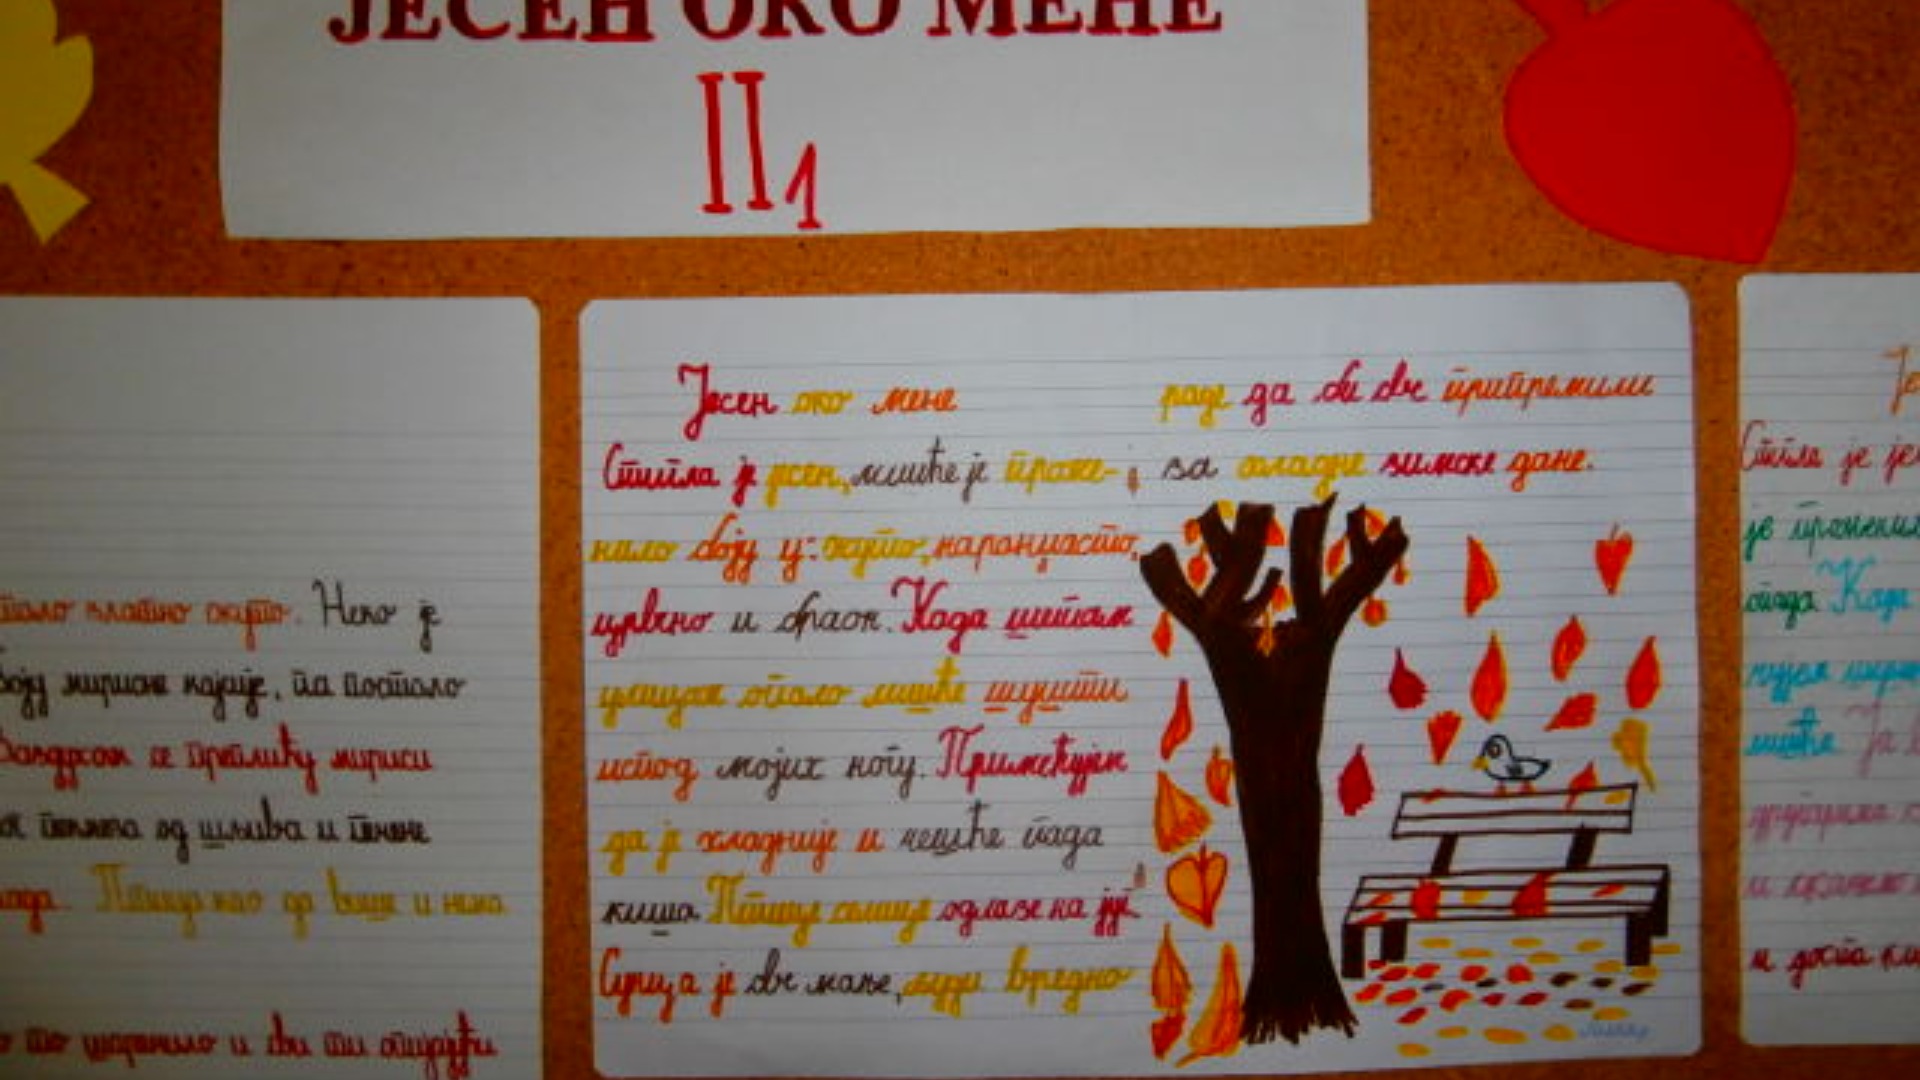 ЈЕСЕН ОКО МЕНЕ
II1
злашно жуто. Неко је
боју мирисне кајсије, па постало
се преплићу мириси
од шљива и печене
као да више и нема
то шаренило и сви ти
Јесен око мене
Стигла је јесен, лишће је проме-
нило боју у: жуто, наранџасто,
црвено и браон. Када шетам
улицом опало лишће шушти
испод мојих ногу. Примећујем
да је хладније и чешће пада
киша. Птице селице одлазе на југ.
Сунца је све мање, људи вредно
раде да би све припремили
за хладне зимске дане.
Стигла је
је
Када
лишће
и
и доста